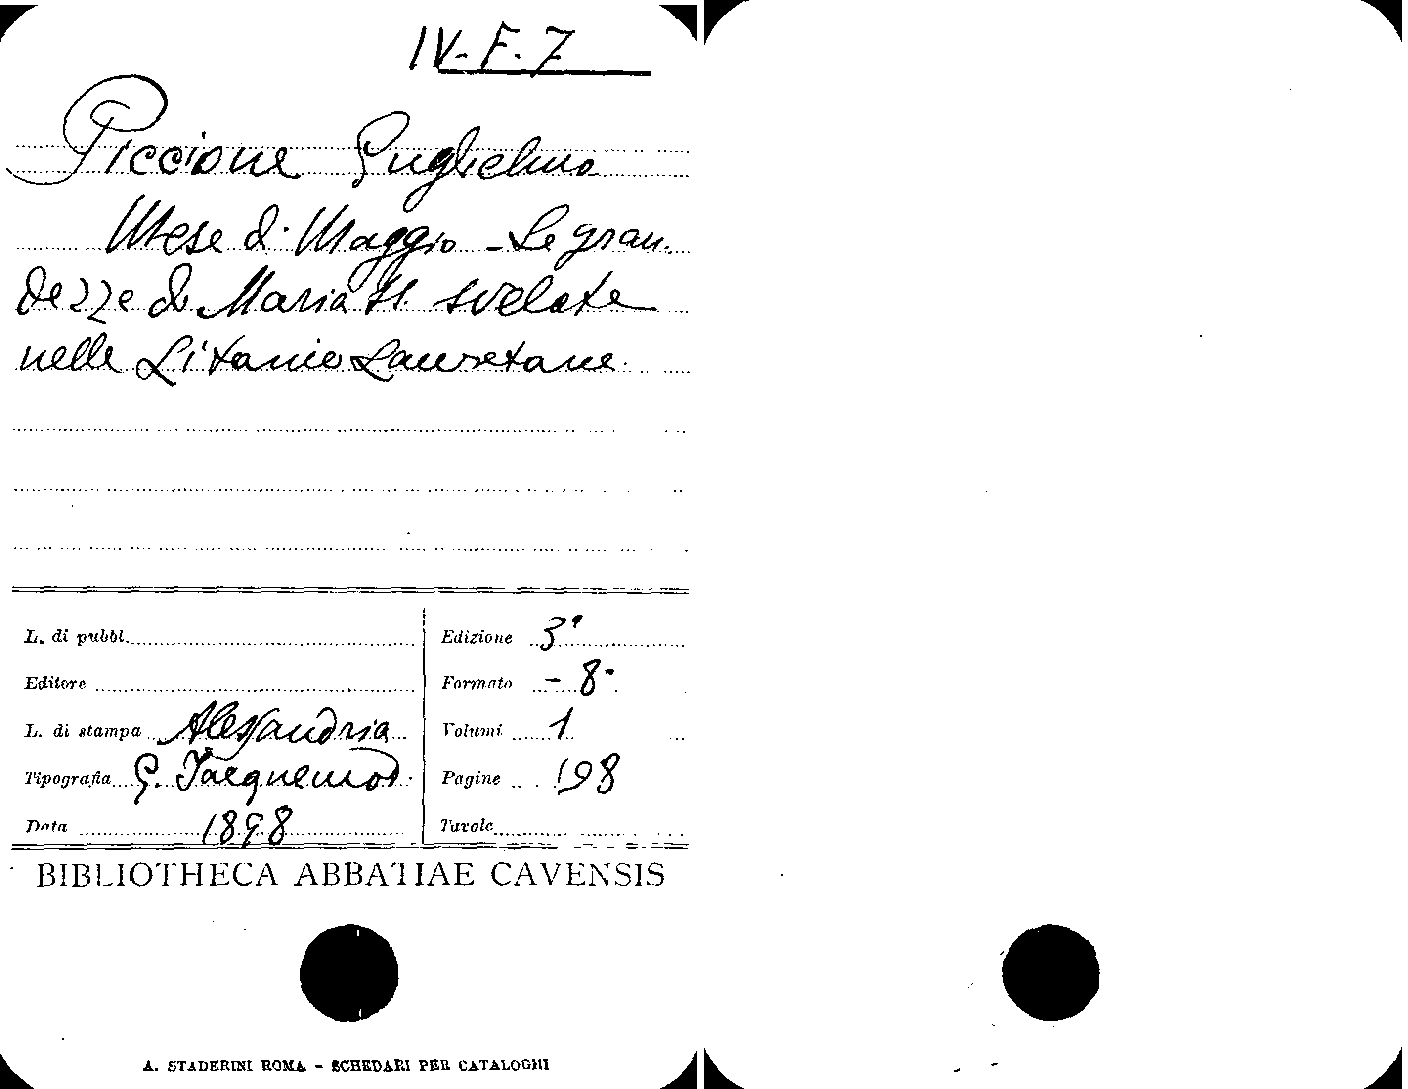 IV-F.7
Piccione Guglielmo
Mese di Maggio - Le gran.
dezze di Maria SS. svelate
nelle Litanie Lauretane.
L. di pubbl.
Edizione 3ª
Editore
Formato - 8°
L. di stampa Alessandria
Volumi 1
Tipografia G. Jacquemod
Pagine 198
Data 1898
Tavole
BIBLIOTHECA ABBATIAE CAVENSIS
A. STADERINI ROMA - SCHEDARI PER CATALOGHI